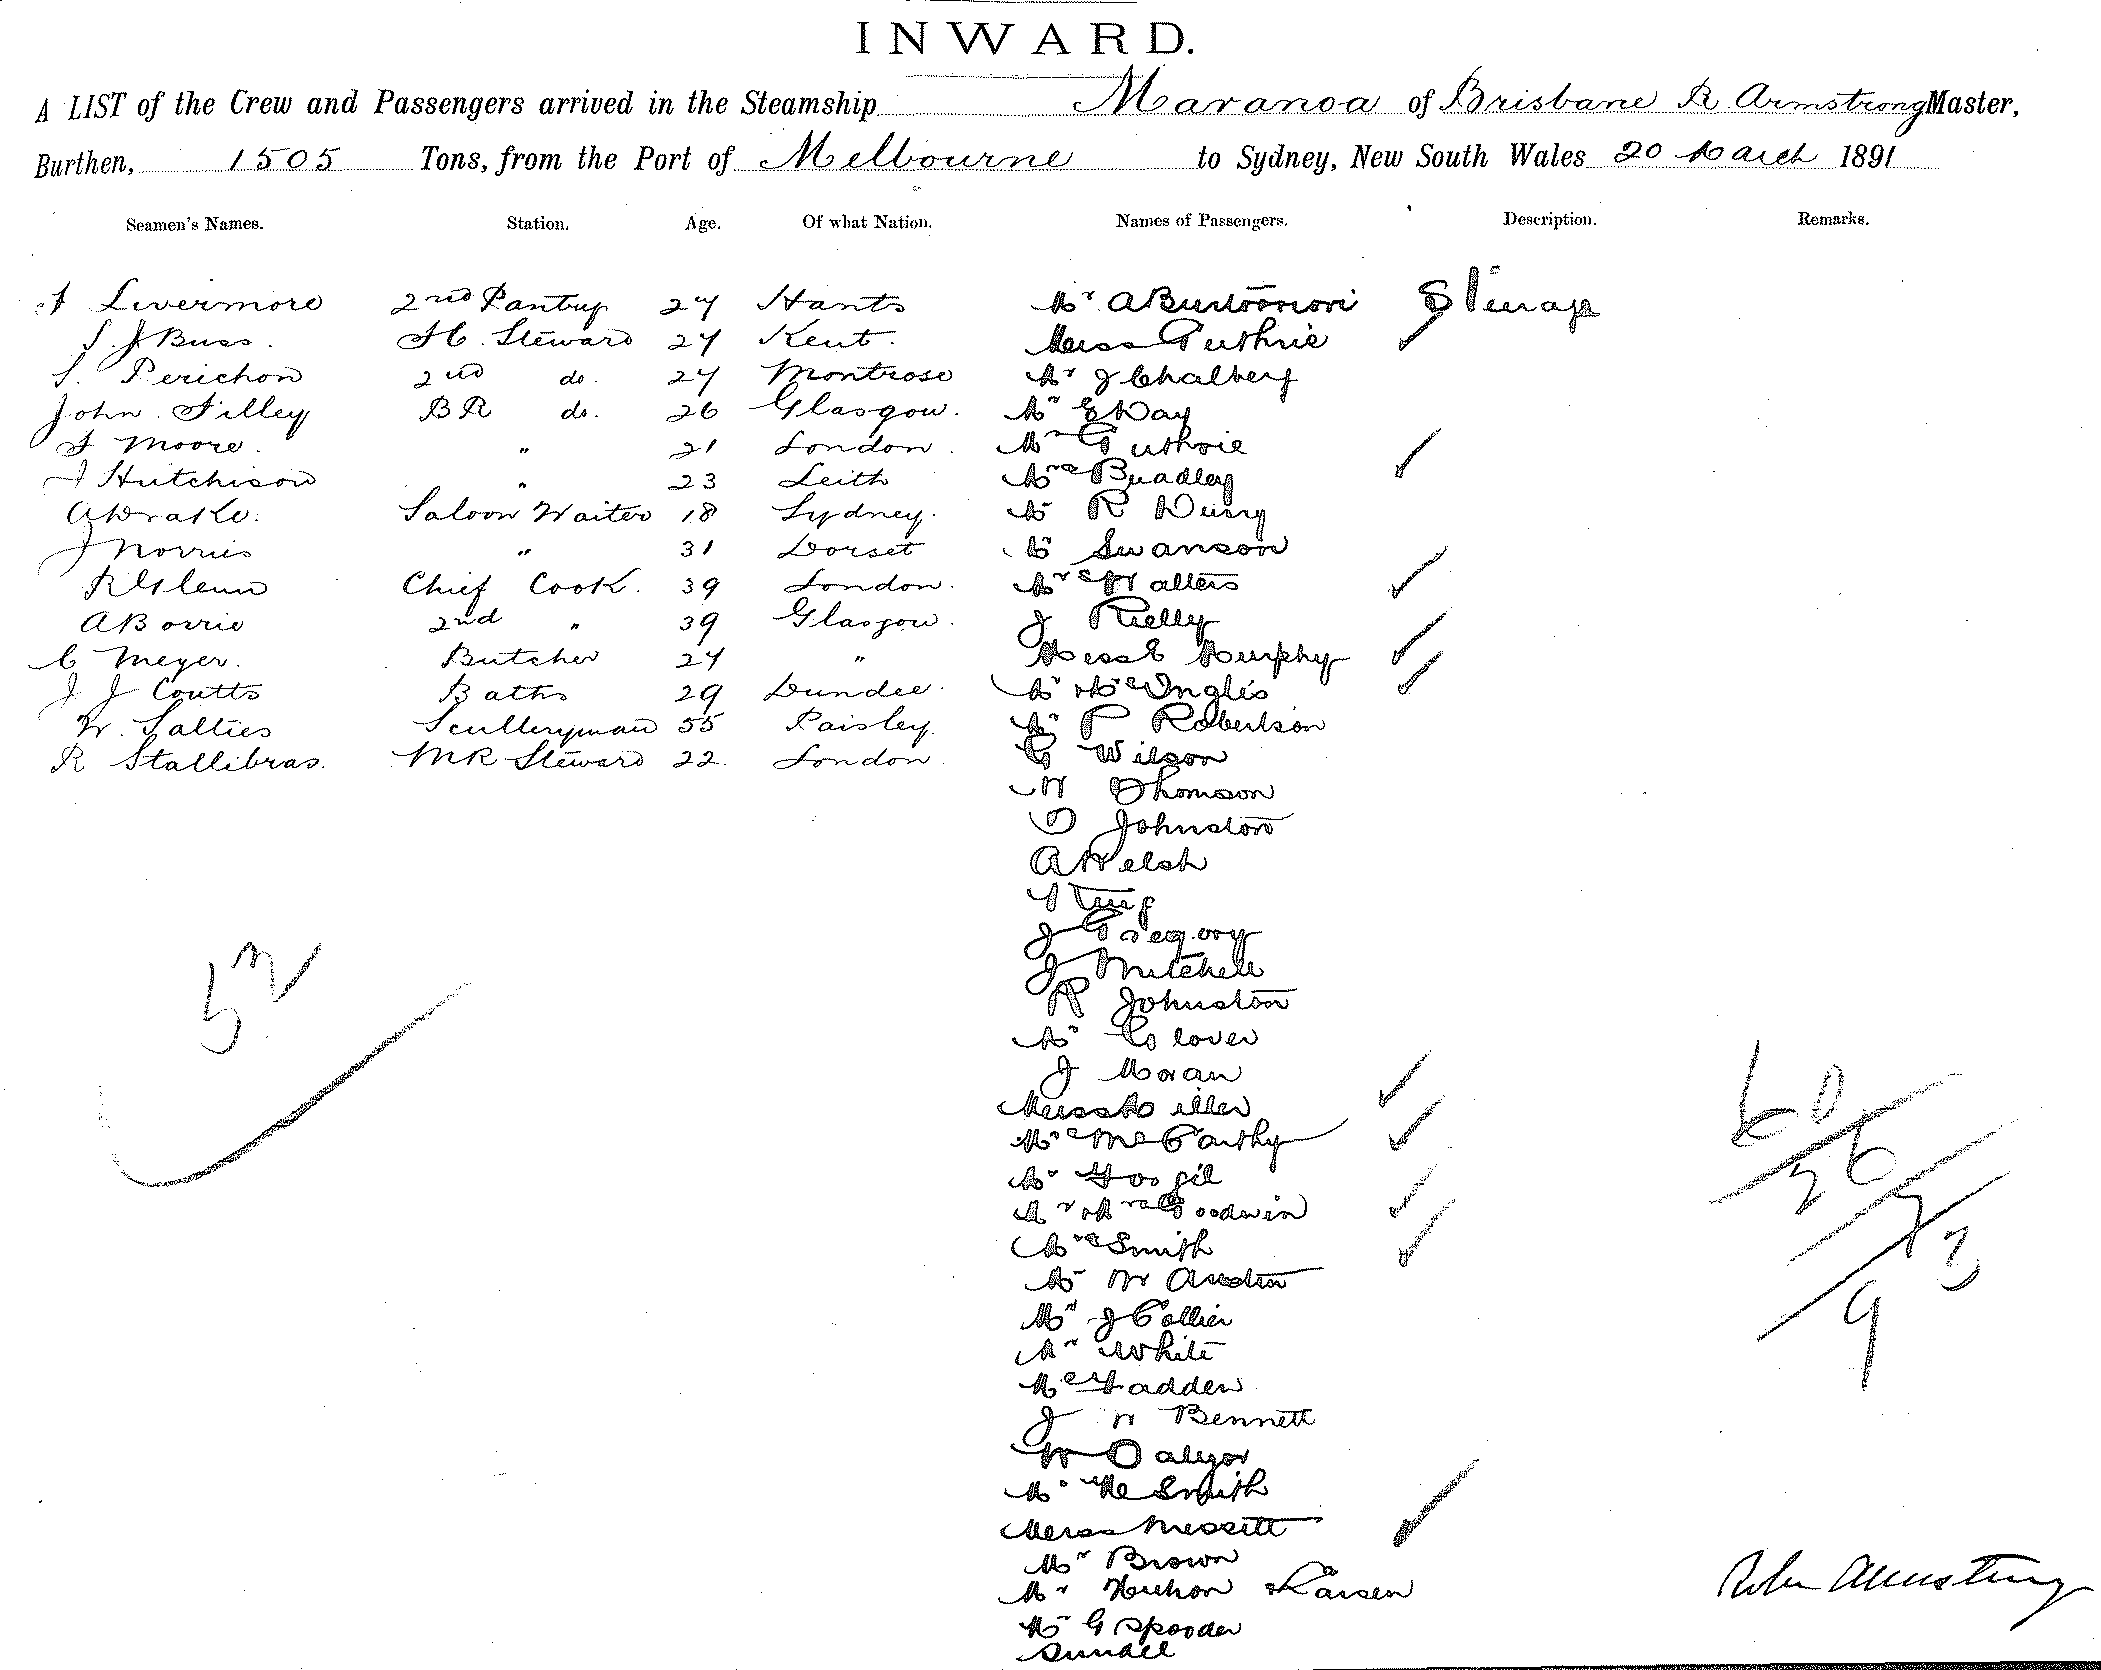 INWARD.
A LIST of the Crew and Passengers arrived in the Steamship Maranoa of Brisbane R Armstrong Master,
Burthen, 1505 Tons, from the Port of Melbourne to Sydney, New South Wales 20 March 1891
Seamen's Names. Station. Age. Of what Nation. Names of Passengers. Description. Remarks.
Livermore 2nd Pantry 27 Hants Mr A
S. J Buss. Steward 27 Kent. Miss Guthrie
S. Perichon 2nd do. 27 Montrose Mr J Chalberg
John Tilley BR do. 26 Glasgow. Mr E Day
J Moore. " 21 London. Mr Guthrie
J Hutchison " 23 Leith Mrs Bradley
A Drake. Saloon Waiter 18 Sydney. Mr R
J Norris " 31 Dorset Swanson
R Glenn Chief Cook. 39 London. Mrs Walters
A Borrie 2nd " 39 Glasgow. J Reilly
C Meyer. Butcher 27 " Miss E Murphy
J J Coutts Baths 29 Dundee. Mr Mrs Inglis
W. Salties Sculleryman 55 Paisley. Mr P Robertson
R Stallibras. MR Steward 22. London. G Wilson
W Thomson
D Johnston
A Welsh
J Gregory
J Mitchell
R Johnston
Mr Glover
J Moran
Miss Miller
Mrs McCarthy
Mr
Mr Mrs Goodwin
Mrs Smith
Mr W Austin
Mr J Collier
Mr White
McFadden
J W Bennett
W
Mr Smith
Miss Messett
Mr Brown
Mr Larsen
Mr G Spooder
Sundell
52
60
26
7
23
9
Robt Armstrong